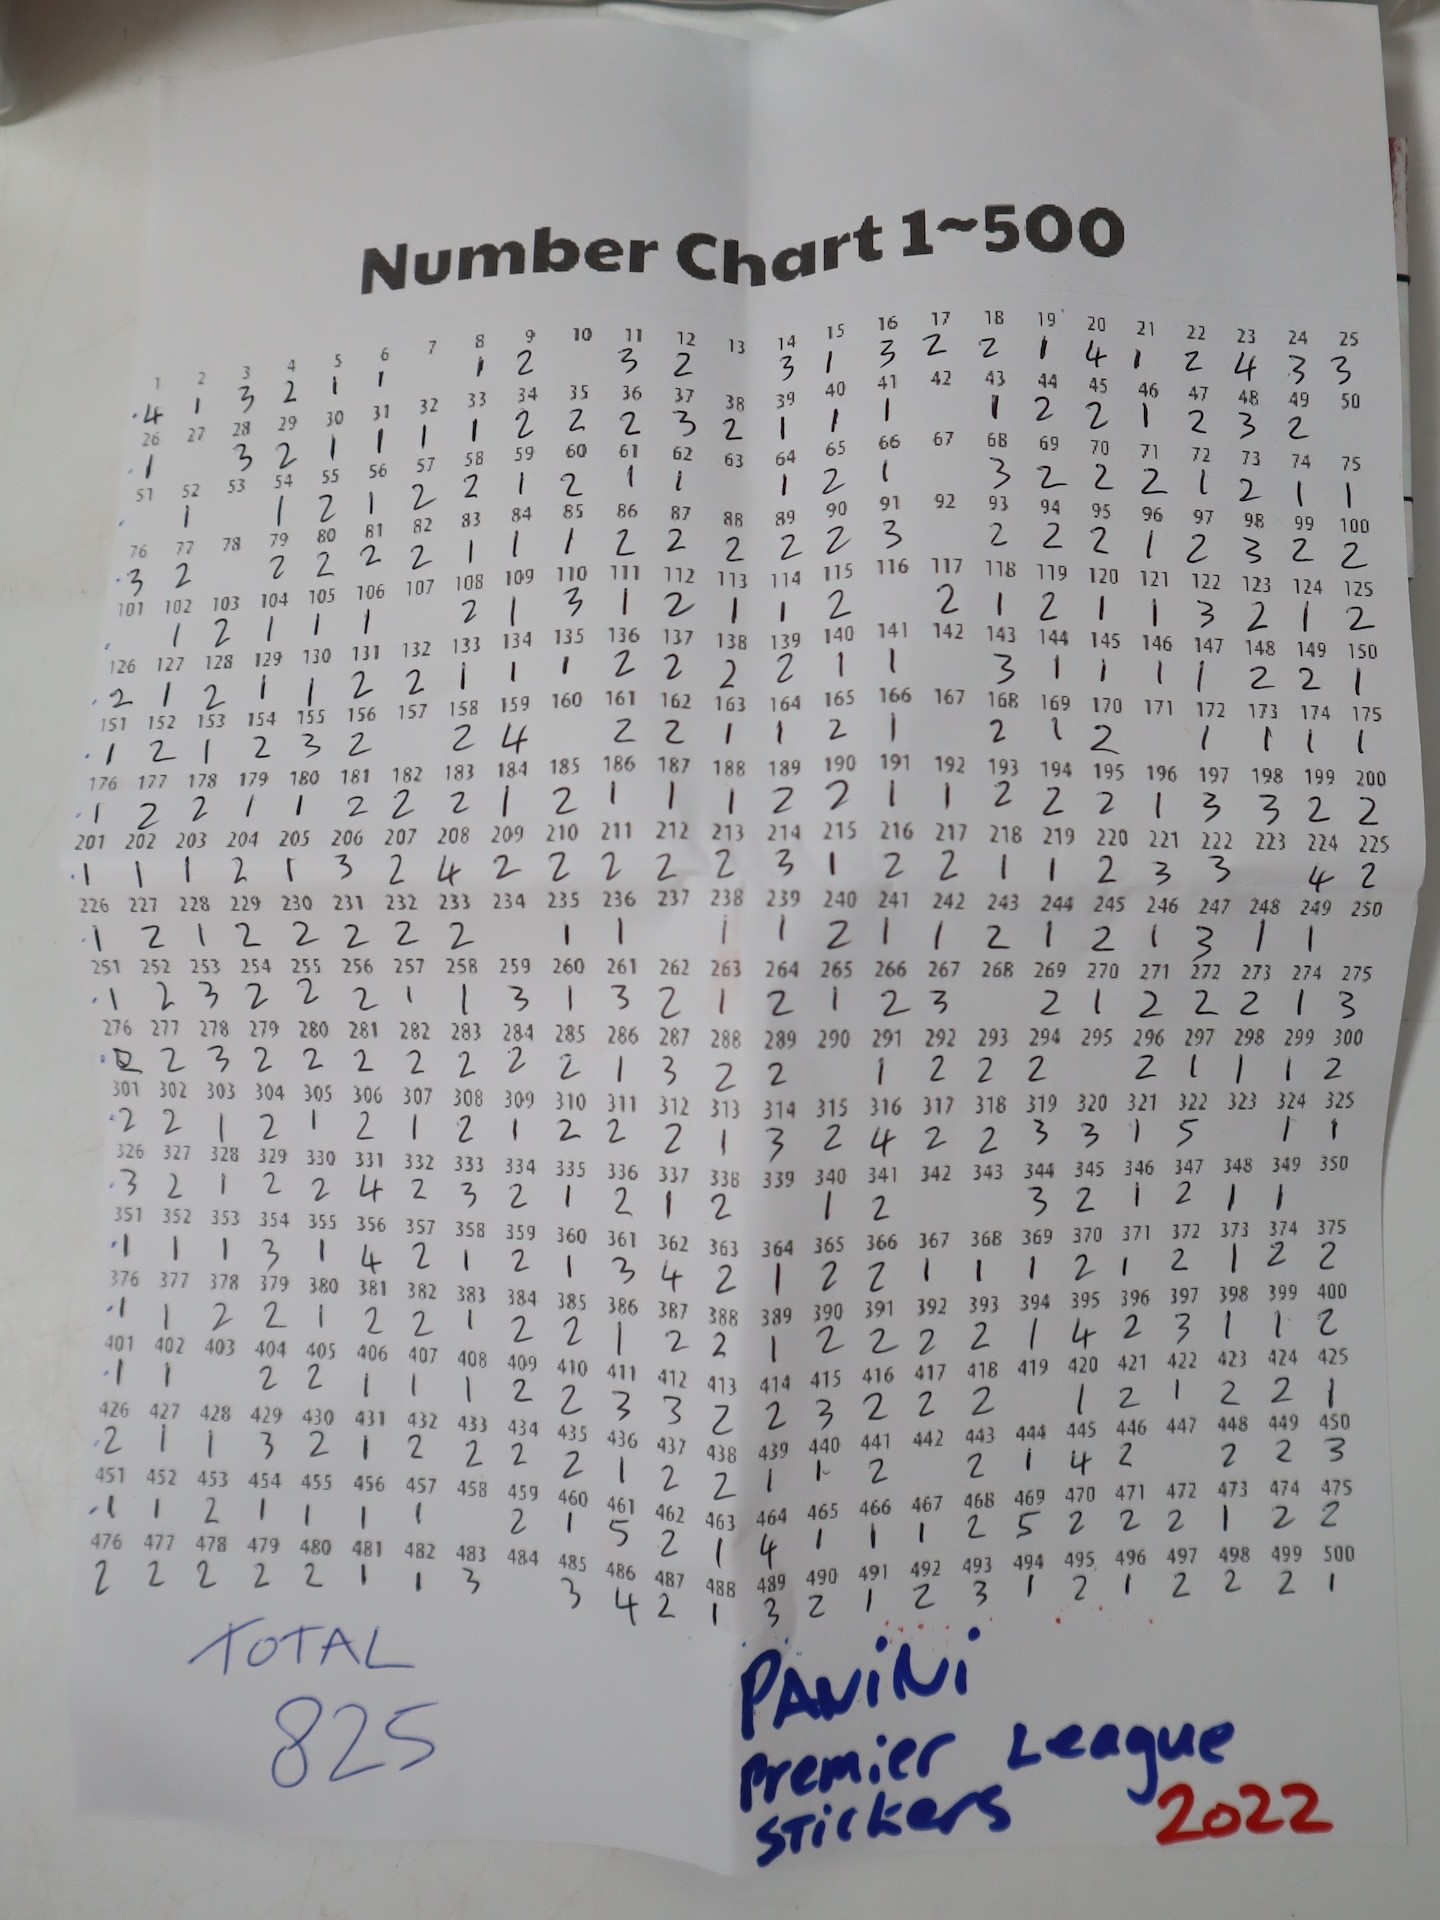 Number Chart 1~500
1 2 3 4 5 6 7 8 9 10 11 12 13 14 15 16 17 18 19 20 21 22 23 24 25
4 1 3 2 1 1 1 2 3 2 3 1 3 2 2 1 4 1 2 4 3 3
26 27 28 29 30 31 32 33 34 35 36 37 38 39 40 41 42 43 44 45 46 47 48 49 50
1 3 2 1 1 1 1 2 2 2 3 2 1 1 1 1 2 2 1 2 3 2
51 52 53 54 55 56 57 58 59 60 61 62 63 64 65 66 67 68 69 70 71 72 73 74 75
1 1 2 1 2 2 1 2 1 1 1 2 1 3 2 2 2 1 2 1 1
76 77 78 79 80 81 82 83 84 85 86 87 88 89 90 91 92 93 94 95 96 97 98 99 100
3 2 2 2 2 2 1 1 1 2 2 2 2 2 3 2 2 2 1 2 3 2 2
101 102 103 104 105 106 107 108 109 110 111 112 113 114 115 116 117 118 119 120 121 122 123 124 125
1 2 1 1 1 2 1 3 1 2 1 1 2 2 1 2 1 1 3 2 1 2
126 127 128 129 130 131 132 133 134 135 136 137 138 139 140 141 142 143 144 145 146 147 148 149 150
2 1 2 1 1 2 2 1 1 1 2 2 2 2 1 1 3 1 1 1 1 2 2 1
151 152 153 154 155 156 157 158 159 160 161 162 163 164 165 166 167 168 169 170 171 172 173 174 175
1 2 1 2 3 2 2 4 2 2 1 1 2 1 2 1 2 1 1 1 1
176 177 178 179 180 181 182 183 184 185 186 187 188 189 190 191 192 193 194 195 196 197 198 199 200
1 2 2 1 1 2 2 2 1 2 1 1 1 2 2 1 1 2 2 2 1 3 3 2 2
201 202 203 204 205 206 207 208 209 210 211 212 213 214 215 216 217 218 219 220 221 222 223 224 225
1 1 1 2 1 3 2 4 2 2 2 2 2 3 1 2 2 1 1 2 3 3 4 2
226 227 228 229 230 231 232 233 234 235 236 237 238 239 240 241 242 243 244 245 246 247 248 249 250
1 2 1 2 2 2 2 2 1 1 1 1 2 1 1 2 1 2 1 3 1 1
251 252 253 254 255 256 257 258 259 260 261 262 263 264 265 266 267 268 269 270 271 272 273 274 275
1 2 3 2 2 2 1 1 3 1 3 2 1 2 1 2 3 2 1 2 2 2 1 3
276 277 278 279 280 281 282 283 284 285 286 287 288 289 290 291 292 293 294 295 296 297 298 299 300
2 2 3 2 2 2 2 2 2 2 1 3 2 2 1 2 2 2 2 1 1 1 2
301 302 303 304 305 306 307 308 309 310 311 312 313 314 315 316 317 318 319 320 321 322 323 324 325
2 2 1 2 1 2 1 2 1 2 2 2 1 3 2 4 2 2 3 3 1 5 1 1
326 327 328 329 330 331 332 333 334 335 336 337 338 339 340 341 342 343 344 345 346 347 348 349 350
3 2 1 2 2 4 2 3 2 1 2 1 2 1 2 3 2 1 2 1 1
351 352 353 354 355 356 357 358 359 360 361 362 363 364 365 366 367 368 369 370 371 372 373 374 375
1 1 1 3 1 4 2 1 2 1 3 4 2 1 2 2 1 1 1 2 1 2 1 2 2
376 377 378 379 380 381 382 383 384 385 386 387 388 389 390 391 392 393 394 395 396 397 398 399 400
1 1 2 2 1 2 2 1 2 2 1 2 2 1 2 2 2 2 1 4 2 3 1 1 2
401 402 403 404 405 406 407 408 409 410 411 412 413 414 415 416 417 418 419 420 421 422 423 424 425
1 1 2 2 1 1 1 2 2 3 3 2 2 3 2 2 2 1 2 1 2 2 1
426 427 428 429 430 431 432 433 434 435 436 437 438 439 440 441 442 443 444 445 446 447 448 449 450
2 1 1 3 2 1 2 2 2 2 1 2 2 1 1 2 2 1 4 2 2 2 3
451 452 453 454 455 456 457 458 459 460 461 462 463 464 465 466 467 468 469 470 471 472 473 474 475
1 1 2 1 1 1 1 2 1 5 2 1 4 1 1 1 2 5 2 2 2 1 2 2
476 477 478 479 480 481 482 483 484 485 486 487 488 489 490 491 492 493 494 495 496 497 498 499 500
2 2 2 2 2 1 1 3 3 4 2 1 3 2 1 2 3 1 2 1 2 2 2 1
TOTAL
825
PANiNi
Premier League
Stickers 2022